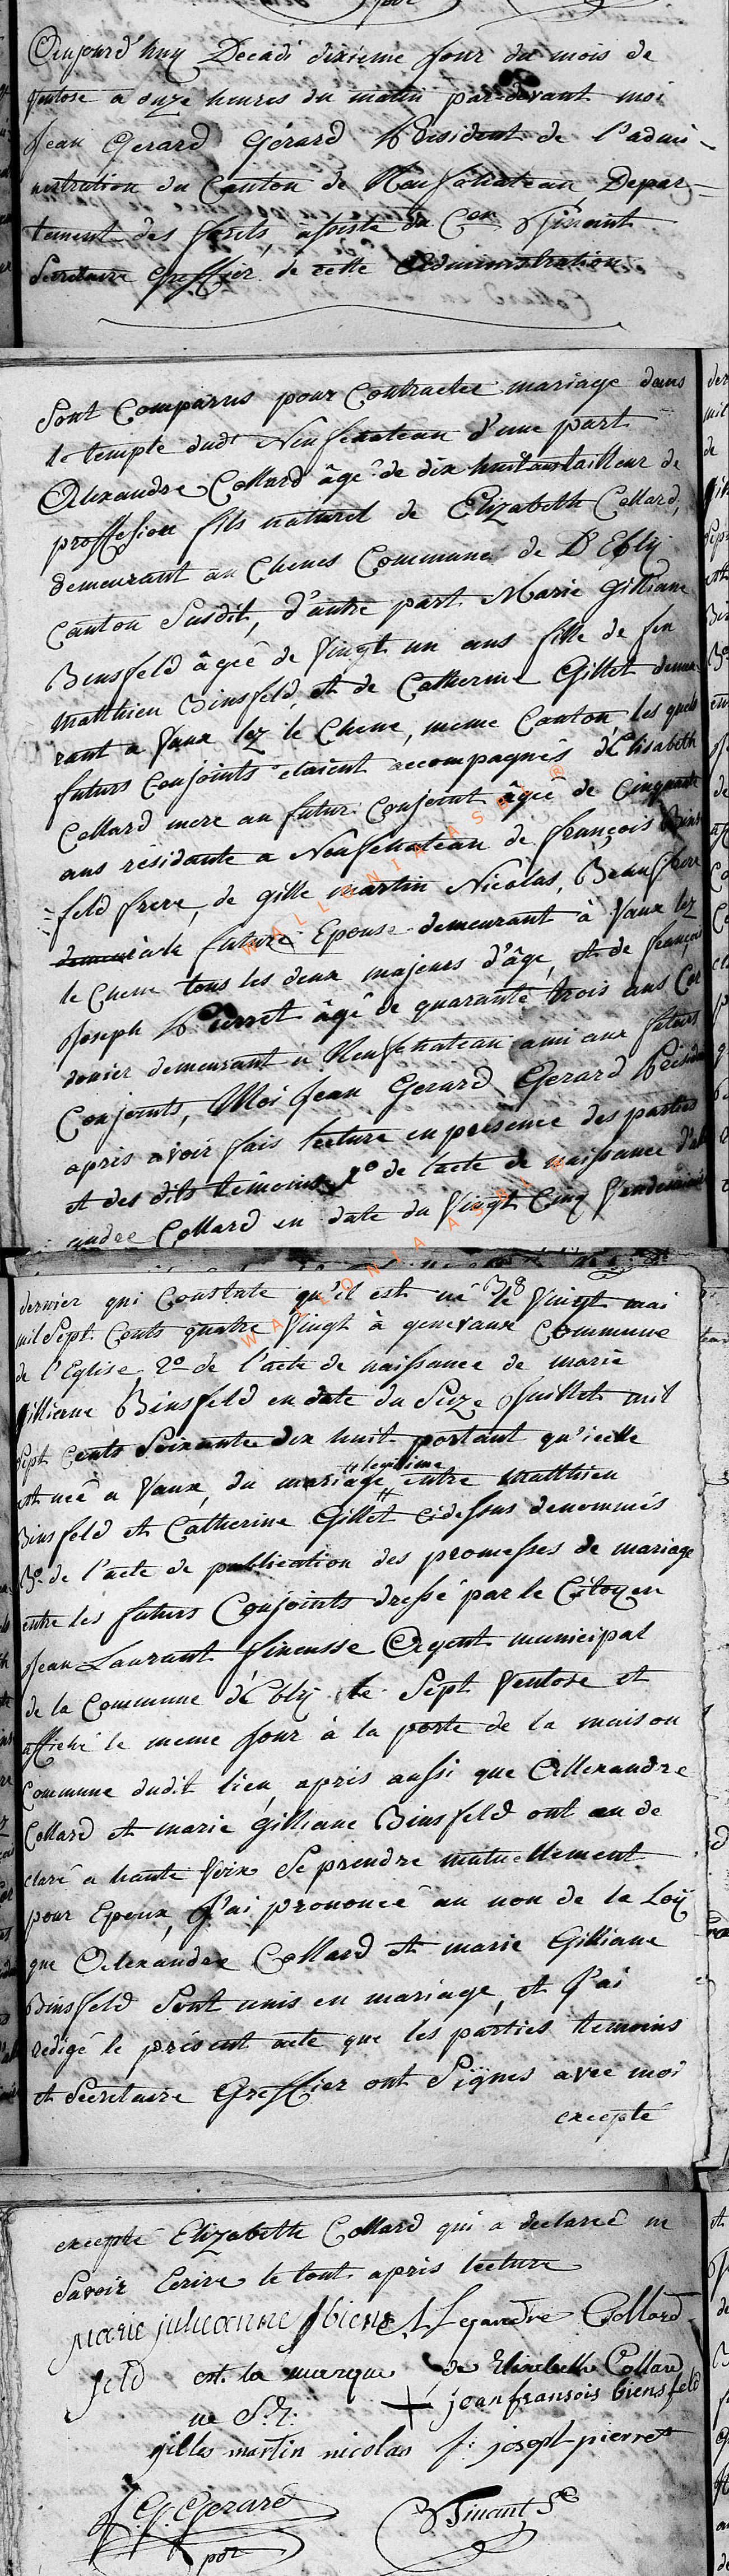 Aujourd'huy Decadi dixieme jour du mois de
Ventose a onze heures du matin par-devant moi
Jean Gerard Gérard President de l'admi-
nistration du Canton de Neufchateau Depar-
tement des forets, assisté du Cen
Secretaire greffier de cette Administration
Sont Comparus pour Contracter mariage dans
le temple dudt Neufchateau d'une part
Alexandre Collard âgé de dix huit ans tailleur de
proffesion fils naturel de Elizabeth Collard,
demeurant au Chenes Commune de D'Ebly
Canton Susdit, d'autre part Marie Gilliane
Binsfeld âgée de Vingt un ans fille de feu
Matthieu Binsfeld, et de Catherine Gillet demeu-
rant a Vaux lez le Chene, meme Canton, les quels
futurs Conjoints etaient accompagnés d'Elisabeth
Collard mere au futur Conjoint âgée de Cinquante
ans résidante a Neufchateau de françois Bins
feld frere, de gille martin Nicolas, Beaufrere
à la future Epouse demeurant à Vaux lez
le Chene tous les deux majeurs d'âge, et de françois
Joseph Pierret âgé de quarante trois ans Cor
donier demeurant a Neufchateau ami aux futurs
Conjoints, Moi Jean Gerard Gerard Président
apris avoir fais lecture en presence des parties
et des dits témoins 1o de l'acte de naissance d'ale
xandre Collard en date du Vingt Cinq Vendemiaire
dernier qui Constate qu'il est né le Vingt mai
mil Sept Cents quatre Vingt à genevaux Commune
de l'Eglise, 2o de l'acte de naissance de marie
Gilliane Binsfeld en date du Seize Juillet mil
Sept Cents Soixante dix huit portant qu'icelle
est neé a Vaux, du mariage legitime entre Matthieu
Binsfeld et Catherine Gillet cidessus denommés
3o de l'acte de publication des promesses de mariage
entre les futurs Conjoints dressé par le Citoyen
Jean Laurant Agent municipal
de la Commune d'Ebly le Sept Ventose et
affiché le meme jour à la porte de la maison
Commune dudit lieu, apris aussi que Allexandre
Collard et marie Gilliane Binsfeld ont eu de
claré a haute Voix Se prendre mutuellement
pour Epoux, J'ai prononcé au non de la Loÿ
que Alexandre Collard et marie Gilliane
Binsfeld Sont unis en mariage, et J'ai
redigé le présent acte que les parties temoins
et Secretaire Greffier ont Signés avec moi
excepté
excepté Elizabeth Collard qui a declareé ne
Savoir Ecrire le tout apris lecture
Marie julieanne biens Alexandre Collard
feld est la marque de Elisabeth Collard
ne S.E. + jean fransois biensfeld
gilles martin nicolas f: joseph pierret
J. G. Gerard